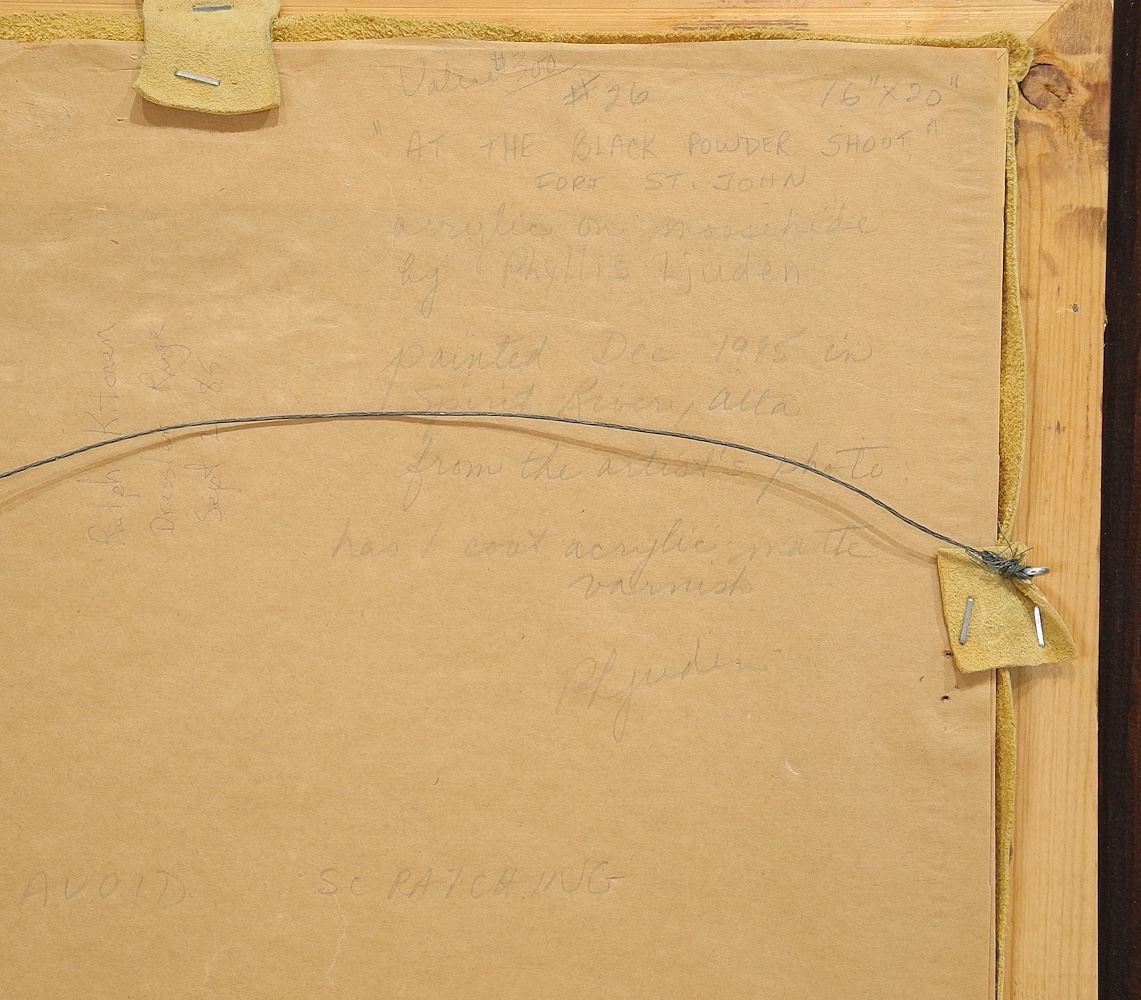 Value $300
# 26 16" X 20"
"AT THE BLACK POWDER SHOOT"
FORT ST. JOHN
acrylic on moosehide
by Phyllis Ljuden
painted Dec 1985 in
Spirit River, Alta
from the artist's photo
has 1 coat acrylic matte
varnish
Phjuden
Ralph
Sept 85
AVOID SCRATCHING